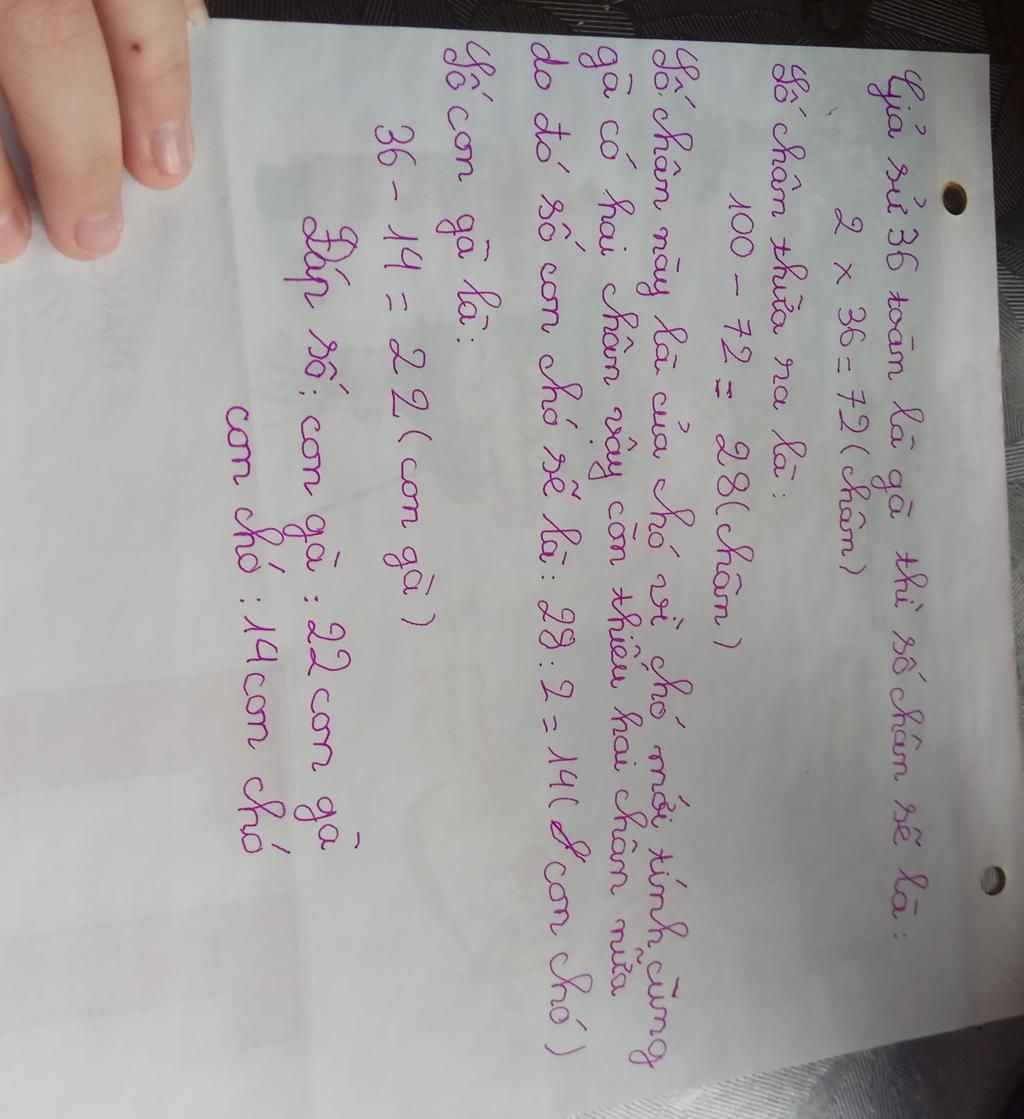 Giả sử 36 toàn là gà thì số chân sẽ là:
2 x 36 = 72 (chân)
Số chân thừa ra là:
100 - 72 = 28 (chân)
Số chân này là của chó vì chó mới tính cũng
gà có hai chân vậy còn thiếu hai chân nữa
do đó số con chó sẽ là: 28 : 2 = 14 ( con chó)
Số con gà là:
36 - 14 = 22 (con gà)
Đáp số: con gà : 22 con gà
con chó : 14 con chó